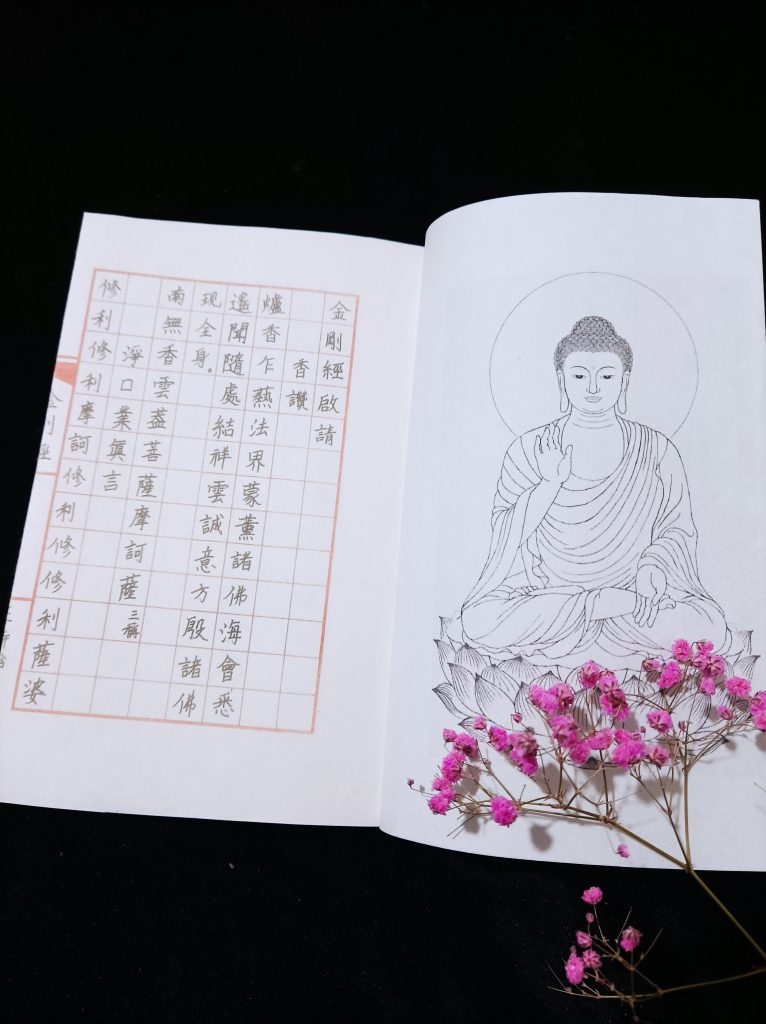 金剛經啟請
香讚
爐香乍爇法界蒙薰諸佛海會悉
遙聞隨處結祥雲誠意方殷諸佛
現全身。
南無香雲蓋菩薩摩訶薩三稱
淨口業眞言
修利修利摩訶修利修修利薩婆